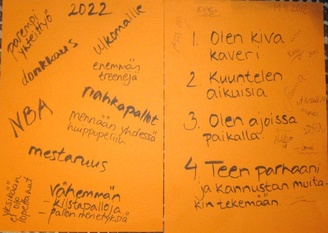 2022
parempi
yhteishyö
ulkomaille
donkkaus
enemmän
treenejä
NBA
nahkapallot
mennään yhdessä
huippupeliin
mestaruus
yksikään
ei oo
lopettanut
vähemmän
- kiistapalloja
- pallon menetyksiä
1. Olen kiva
kaveri
2. Kuuntelen
aikuisia
3. Olen ajoissa
paikalla
4. Teen parhaani
ja kannustan muita
kin tekemään.